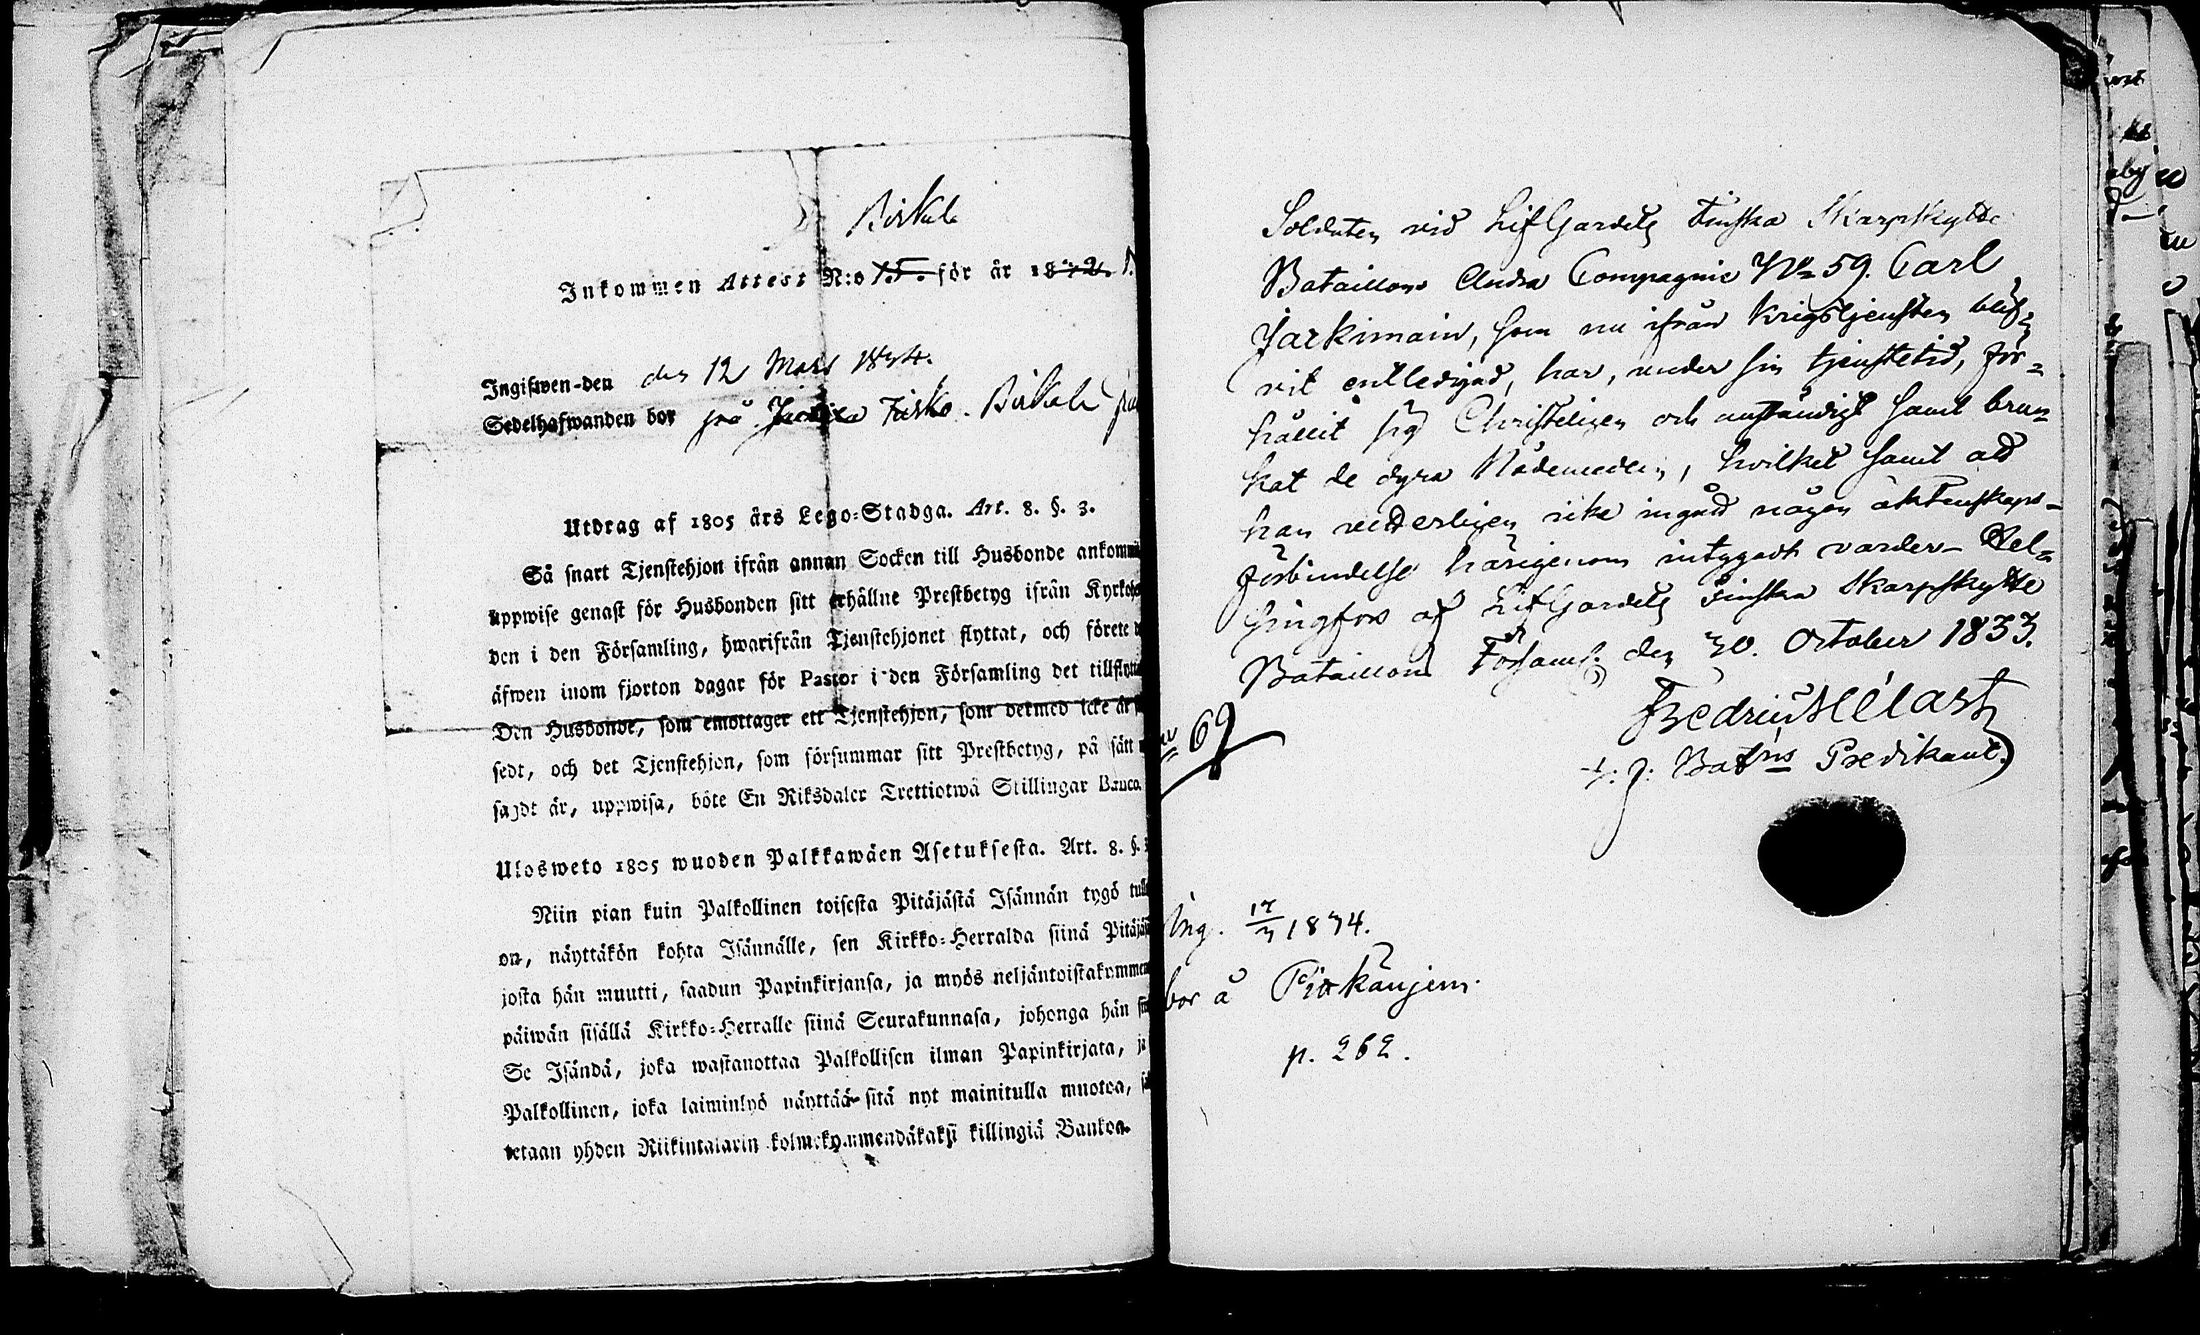 Birkala
Inkommen Attest N:o 15. för år 1842.
Ingifwen den den 12 Mars 1834.
Sedelhafwanden bor på Birkala
Utdrag af 1805 års Lego-Stadga. Art. 8. §. 3.
Så snart Tjenstehjon ifrån annan Socken till Husbonde ankommit
uppwise genast för Husbonden sitt erhållne Prestbetyg ifrån
den i den Församling, hwarifrån Tjenstehjonet flyttat, och förete
äfwen inom fjorton dagar för Pastor i den Församling det
Den Husbonde, som emottager ett Tjenstehjon, som dermed icke är
sedt, och det Tjenstehjon, som försummar sitt Prestbetyg, på sätt
sagdt är, uppwisa, böte En Riksdaler Trettiotwå Skillingar Banco.
Ulosweto 1805 wuoden Palkkawäen Asetuksesta. Art. 8. §.
Niin pian kuin Palkollinen toisesta Pitäjästä Isännän tygö
on, näyttäkön kohta Isännälle, sen Kirkko-Herralda siinä
josta hän muutti, saadun Papinkirjansa, ja myös
päiwän sisällä Kirkko-Herralle siinä Seurakunnasa, johonga hän
Se Isändä, joka wastanottaa Palkollisen ilman Papinkirjata,
Palkollinen, joka laiminlyö näyttää sitä nyt mainitulla muotoa,
tetaan yhden Riikintalarin kolmekymmendäkaksi killingiä Bankoa.
Soldaten vid LifGardets Finska Skarpskytte
Bataillons Andra Compagnie No 59. Carl
Jarkimain, som nu ifrån Krigstjensten blif-
vit entledigad, har, under sin tjenstetid, för-
hållit sig Christeligen och anständigt samt bru-
kat de dyra Nådemedlen, hvilket samt att
han vederligen icke ingått någon äktenskaps-
förbindelse härigenom intygadt varder. Hel-
singfors af LifGardets Finska Skarpskytte
Bataillons Församl: den 30. October 1833.
Bat:ns Predikant.
No 69
Ing. 17/3 1834.
bor å
p. 262.